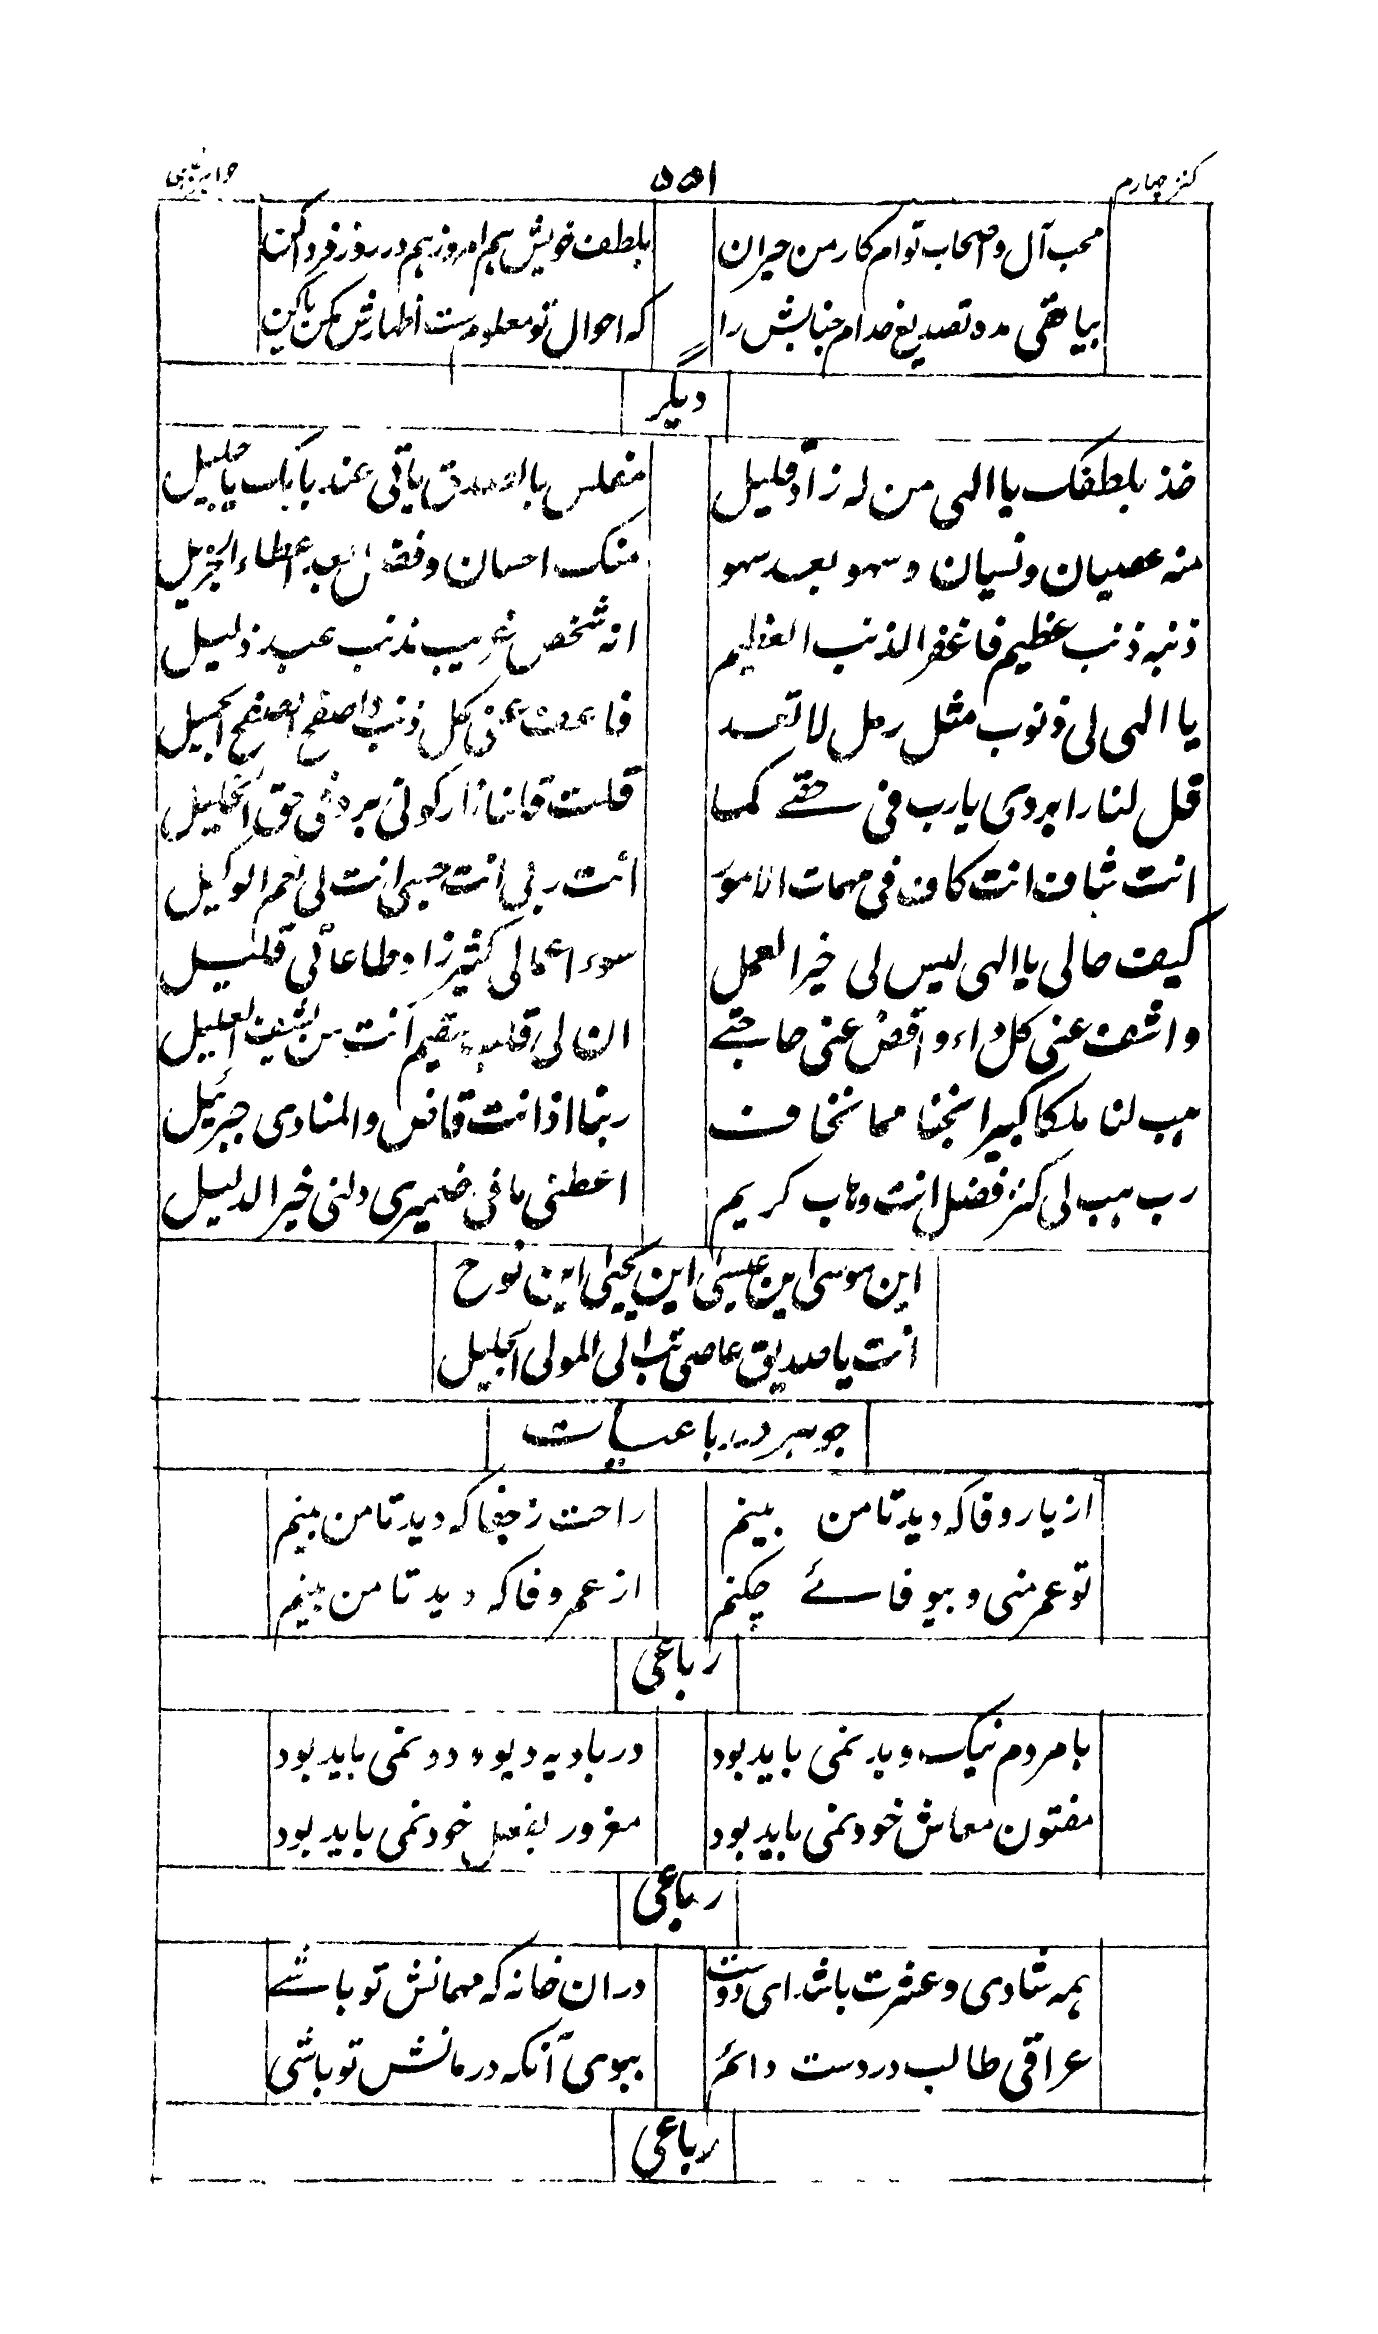 کنز چہارم ۵۵۱
محب آل و اصحاب توام کار من حیران بلطف خویش ہم امروز ہم در روز فردا کن
بیا حقی مده تصدیع خدام جنابش را کہ احوال تو معلومست اظہارش مکن یا کن
دیگر
خذ بلطفک یا الہی من لہ زاد قلیل مفلس بالصدق یاتی عند بابک یا جلیل
منہ عصیان و نسیان و سہو بعد سہو منک احسان و فضل بعد اعطاء الجزیل
ذنبہ ذنب عظیم فاغفر الذنب العظیم انہ شخص غریب مذنب عبد ذلیل
یا الہی لی ذنوب مثل رمل لا تعد فاعف عنی کل ذنب واصفح الصفح الجمیل
قل لنار ابردی یا رب فی حقے کما قلت قلنا نار کونی برد فی حق الخلیل
انت شاف انت کاف فی مہمات الامور انت ربی انت حسبی انت لی نعم الوکیل
کیف حالی یا الہی لیس لی خیر العمل سوء اعمالی کثیر زاد طاعاتی قلیل
و اشف عنی کل داء و اقض عنی حاجتے ان لی قلب سقیم انت من یشف العلیل
ہب لنا ملکا کبیرا نجنا مما نخاف ربنا اذ انت قاض والمنادی جبرئیل
رب ہب لی کنز فضل انت وہاب کریم اعطنی ما فی ضمیری دلنی خیر الدلیل
این موسی این عیسی این یحیی این نوح
انت یا صدیق عاصی تب الی المولی الجلیل
جوہر در رباعیات
از یار وفا کہ دید تا من بینم راحت ز جفا کہ دید تا من بینم
تو عمر منی و بیوفائے چکنم از عمر وفا کہ دید تا من بینم
رباعی
با مردم نیک و بد نمی باید بود در بادیہ دیو و دد نمی باید بود
مفتون معاش خود نمی باید بود مغرور بفعل خود نمی باید بود
رباعی
ہمہ شادی و عشرت باشد ای دوست دران خانہ کہ مہمانش تو باشے
عراقی طالب دردست دائم ببوی آنکہ درمانش تو باشی
رباعی